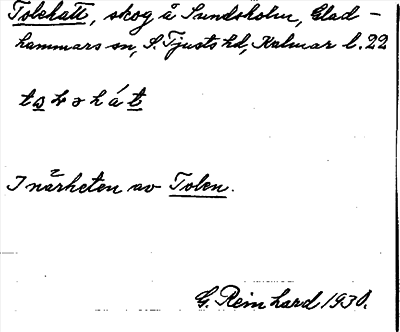 Tolehatt, skog å Sundsholm, Glad-
hammars sn, S. Tjusts hd, Kalmar l. 22
I närheten av Tolen.
G. Reinhard 1930.